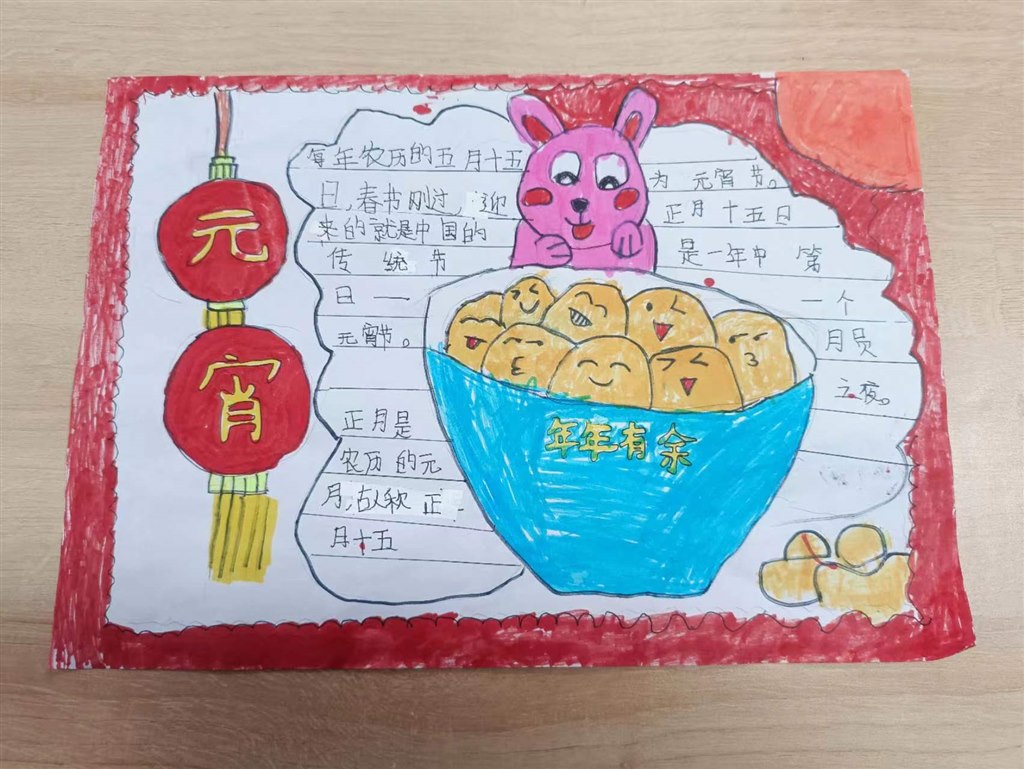 元
宵
每年农历的五月十五
日,春节刚过,迎
来的就是中国的
传统节
日一
元宵节。
正月是
农历的元
月,古人称正
月十五
为元宵节。
正月十五日
是一年中第
一个
月员
之夜。
年年有余